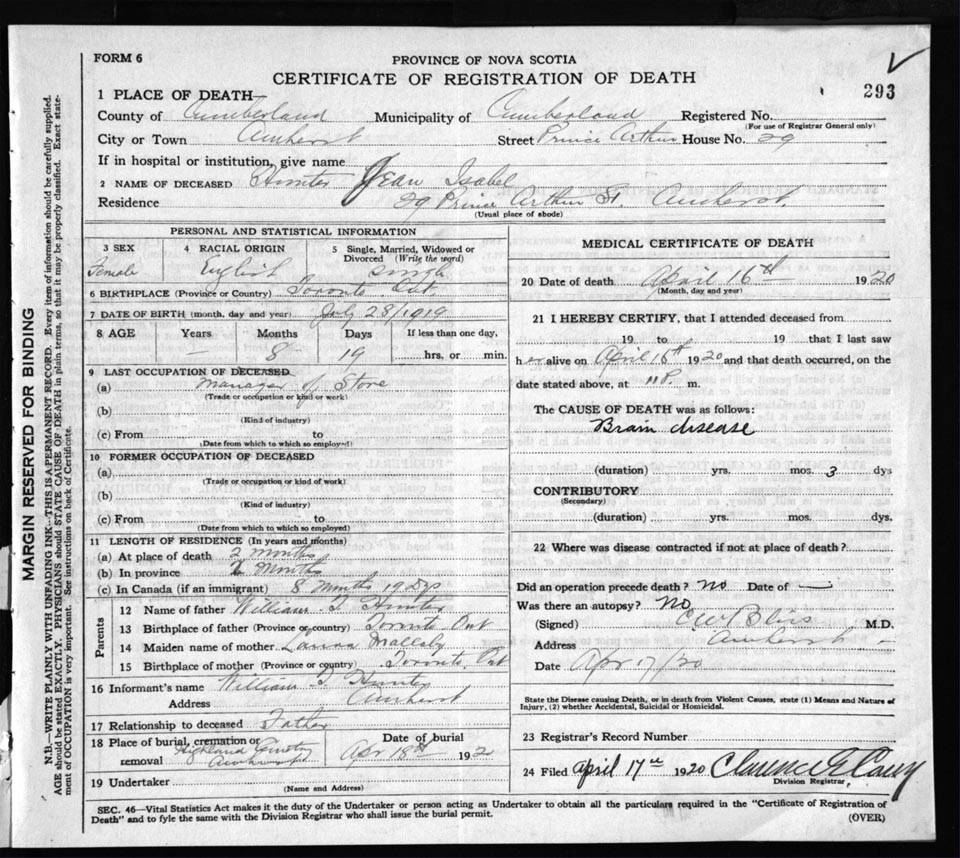 FORM 6
PROVINCE OF NOVA SCOTIA
CERTIFICATE OF REGISTRATION OF DEATH
293
1 PLACE OF DEATH—
County of Cumberland Municipality of Cumberland Registered No.
(For use of Registrar General only)
City or Town Amherst Street Prince Arthur House No. 29
If in hospital or institution, give name
2 NAME OF DECEASED Hunter Jean Isabel
Residence 29 Prince Arthur St. Amherst
(Usual place of abode)
PERSONAL AND STATISTICAL INFORMATION
3 SEX Female
4 RACIAL ORIGIN English
5 Single, Married, Widowed or Divorced (Write the word) single
6 BIRTHPLACE (Province or Country) Toronto Ont
7 DATE OF BIRTH (month, day and year) July 28/1919
8 AGE Years Months Days If less than one day,
— 8 19 hrs. or min.
9 LAST OCCUPATION OF DECEASED
(a) manager of Store
(Trade or occupation or kind of work)
(b)
(Kind of industry)
(c) From to
(Date from which to which so employed)
10 FORMER OCCUPATION OF DECEASED
(a)
(Trade or occupation or kind of work)
(b)
(Kind of industry)
(c) From to
(Date from which to which so employed)
11 LENGTH OF RESIDENCE (In years and months)
(a) At place of death 2 months
(b) In province 2 Months
(c) In Canada (if an immigrant) 8 Months 19 Dys
Parents
12 Name of father William T. Hunter
13 Birthplace of father (Province or country) Toronto Ont
14 Maiden name of mother Laura
15 Birthplace of mother (Province or country) Toronto, Ont
16 Informant's name William T. Hunter
Address Amherst
17 Relationship to deceased Father
18 Place of burial, cremation or removal Highland Cemetery Amherst
Date of burial Apr 18th 192
19 Undertaker
(Name and Address)
MEDICAL CERTIFICATE OF DEATH
20 Date of death April 16th 1920
(Month, day and year)
21 I HEREBY CERTIFY, that I attended deceased from
19 to 19 that I last saw
her alive on April 16th 1920 and that death occurred, on the
date stated above, at 11 P. m.
The CAUSE OF DEATH was as follows:
Brain disease
(duration) yrs. mos. 3 dys
CONTRIBUTORY
(Secondary)
(duration) yrs. mos. dys.
22 Where was disease contracted if not at place of death?
Did an operation precede death? No Date of —
Was there an autopsy? No
(Signed) Bliss M.D.
Address Amherst
Date Apr 17/20
State the Disease causing Death, or in death from Violent Causes, state (1) Means and Nature of
Injury, (2) whether Accidental, Suicidal or Homicidal.
23 Registrar's Record Number
24 Filed April 17th 1920 Clarence E Casey
Division Registrar
SEC. 46—Vital Statistics Act makes it the duty of the Undertaker or person acting as Undertaker to obtain all the particulars required in the "Certificate of Registration of
Death" and to fyle the same with the Division Registrar who shall issue the burial permit.
(OVER)
MARGIN RESERVED FOR BINDING
N.B.—WRITE PLAINLY WITH UNFADING INK—THIS IS A PERMANENT RECORD. Every item of information should be carefully supplied.
AGE should be stated EXACTLY. PHYSICIANS should STATE CAUSE OF DEATH in plain terms, so that it may be properly classified. Exact state-
ment of OCCUPATION is very important. See instructions on back of Certificate.